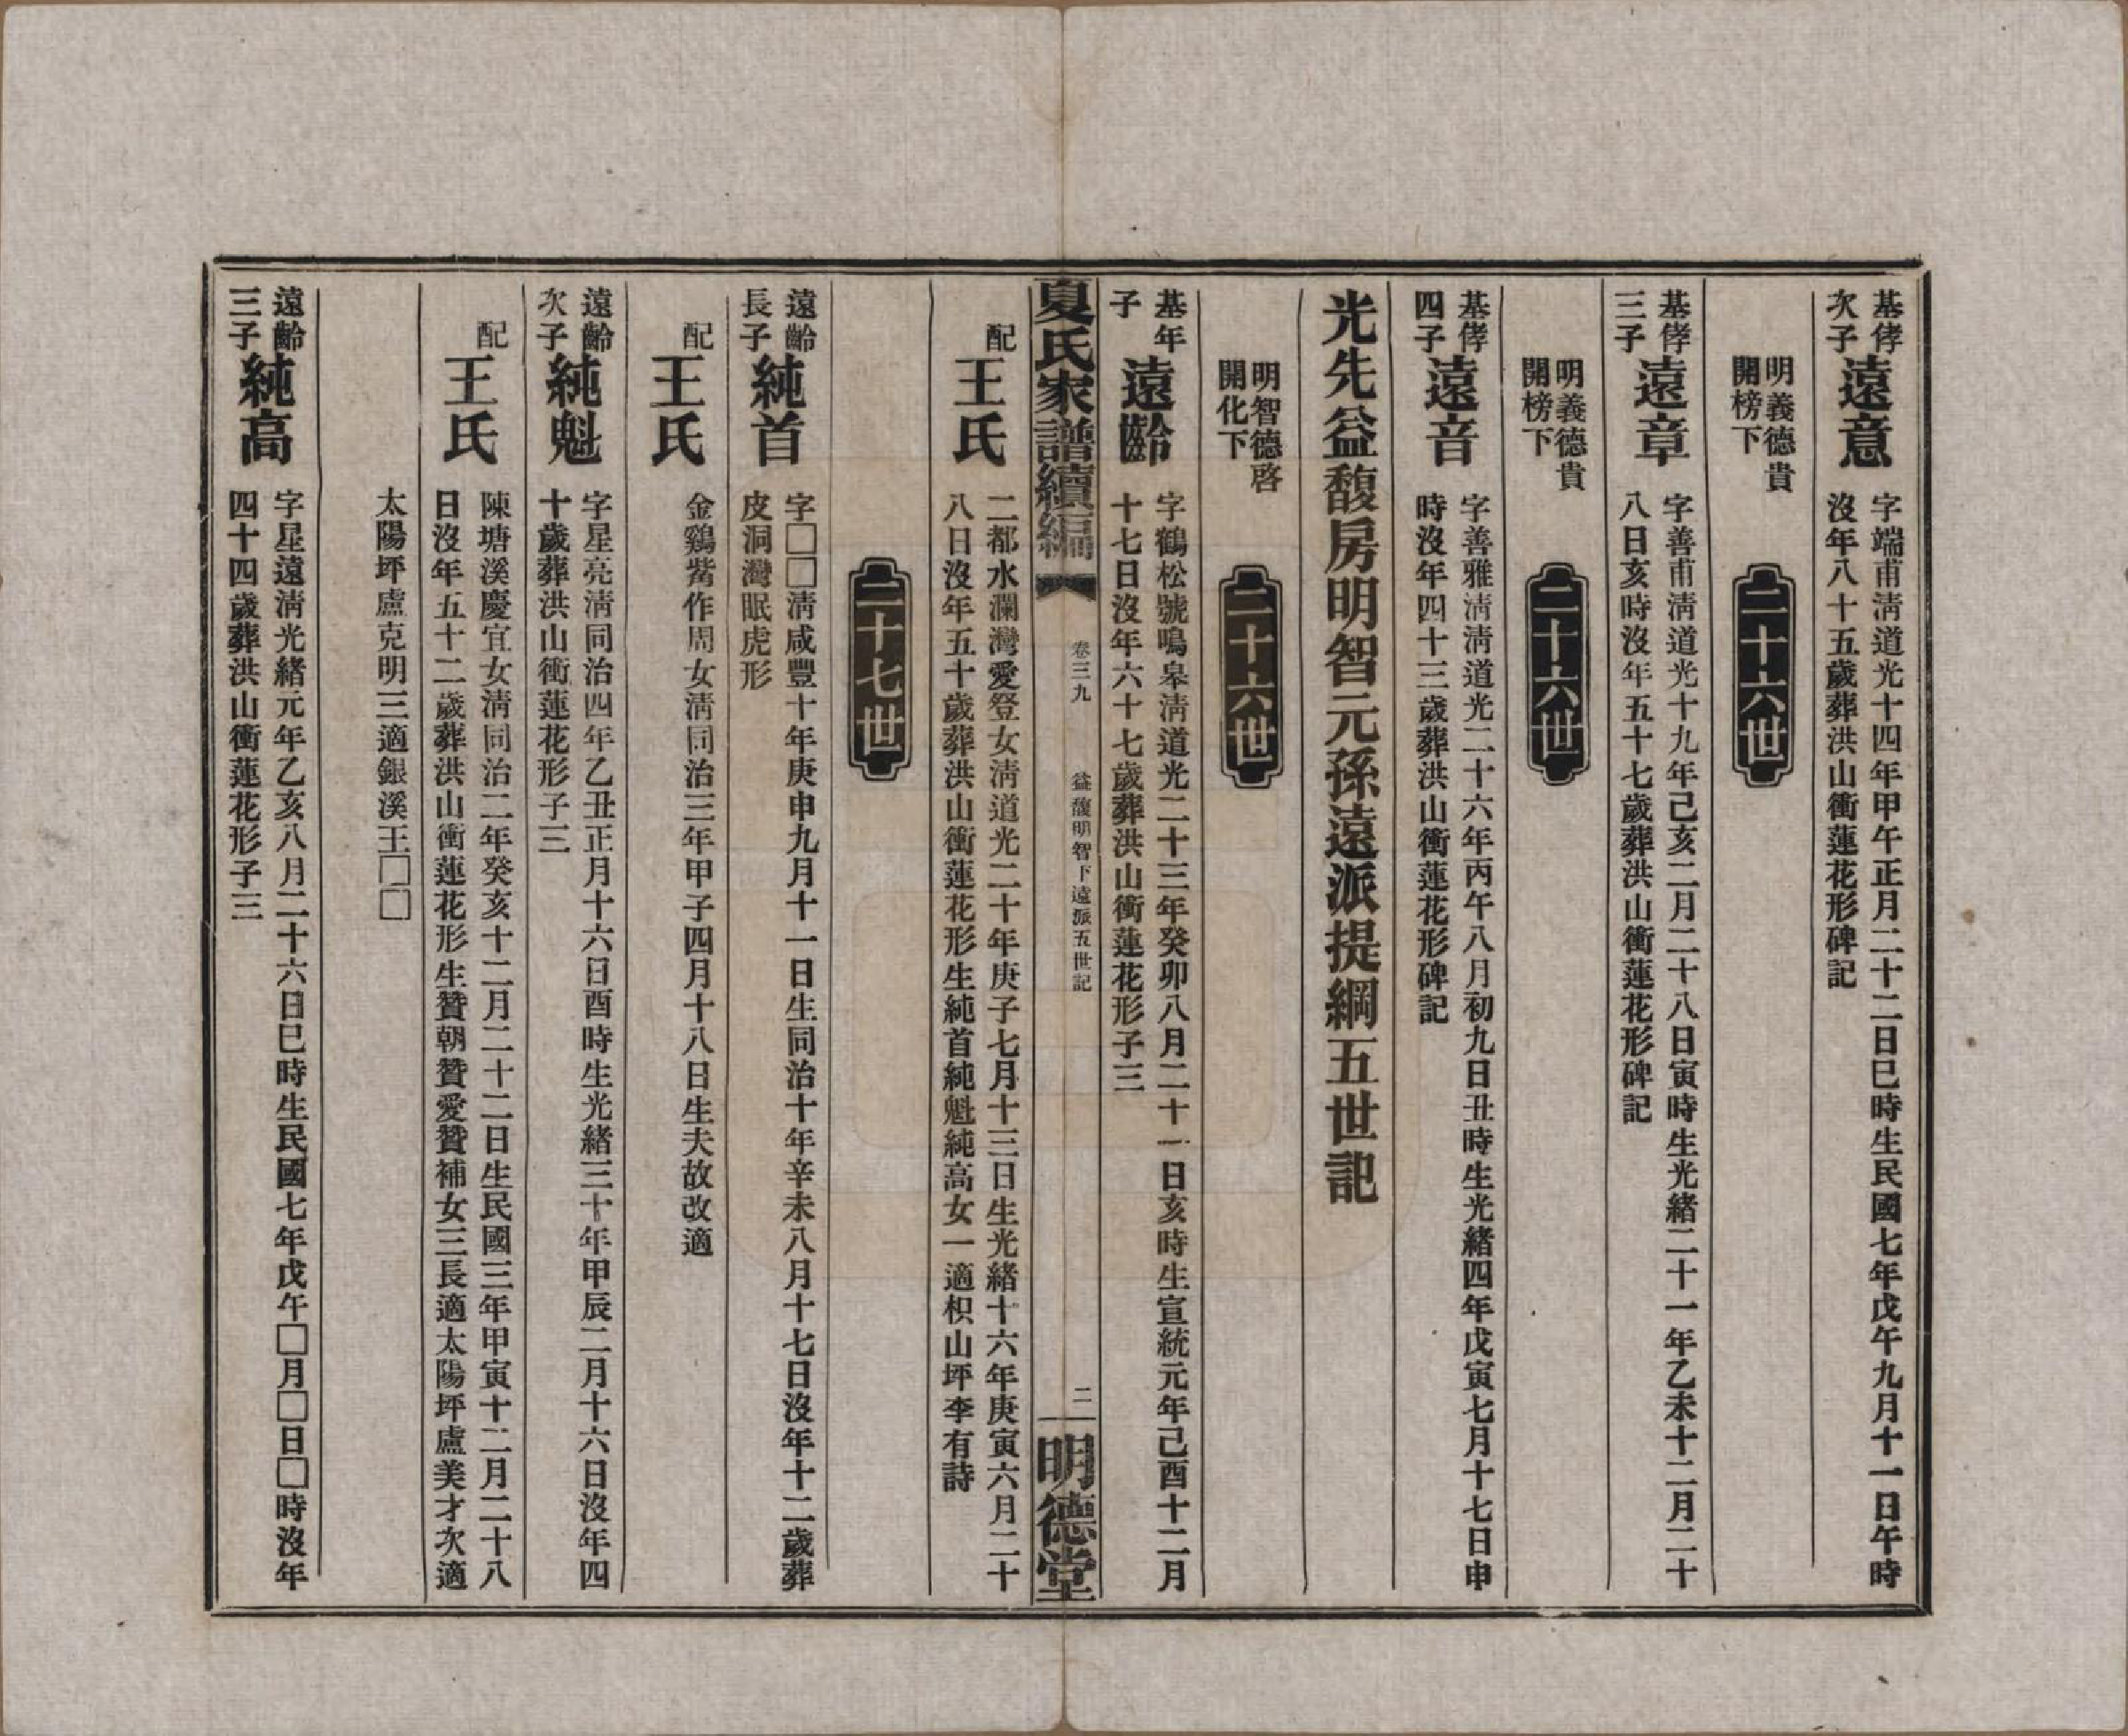 基侾
次子
遠意
字端甫淸道光十四年甲午正月二十二日巳時生民國七年戊午九月十一日午時
沒年八十五歲葬洪山衝蓮花形碑記
明義德貴
開榜下
二十六世
基侾
三子
遠章
字善甫淸道光十九年己亥二月二十八日寅時生光緒二十一年乙未十二月二十
八日亥時沒年五十七歲葬洪山衝蓮花形碑記
明義德貴
開榜下
二十六世
基侾
四子
遠音
字善雅淸淸道光二十六年丙午八月初九日丑時生光緒四年戊寅七月十七日申
時沒年四十三歲葬洪山衝蓮花形碑記
光先益馥房明智元孫遠派提綱五世記
明智德啓
開化下
二十六世
基年
子
遠齡
字鶴松號鳴皋淸道光二十三年癸卯八月二十一日亥時生宣統元年己酉十二月
十七日沒年六十七歲葬洪山衝蓮花形子三
夏氏家譜續編
卷三九
益馥明智下遠派五世記
二
明德堂
配
王氏
二都水瀾灣愛登女淸道光二十年庚子七月十三日生光緒十六年庚寅六月二十
八日沒年五十歲葬洪山衝蓮花形生純首純魁純高女一適枳山坪李有詩
二十七世
遠齡
長子
純首
字□□淸咸豐十年庚申九月十一日生同治十年辛未八月十七日沒年十二歲葬
皮洞灣眠虎形
配
王氏
金鷄觜作周女淸同治三年甲子四月十八日生夫故改適
遠齡
次子
純魁
字星亮淸同治四年乙丑正月十六日酉時生光緒三十年甲辰二月十六日沒年四
十歲葬洪山衝蓮花形子三
配
王氏
陳塘溪慶宜女淸同治二年癸亥十二月二十二日生民國三年甲寅十二月二十八
日沒年五十二歲葬洪山衝蓮花形生贊朝贊愛贊補女三長適太陽坪盧美才次適
太陽坪盧克明三適銀溪王□□
遠齡
三子
純高
字星遠淸光緒元年乙亥八月二十六日巳時生民國七年戊午□月□日□時沒年
四十四歲葬洪山衝蓮花形子三